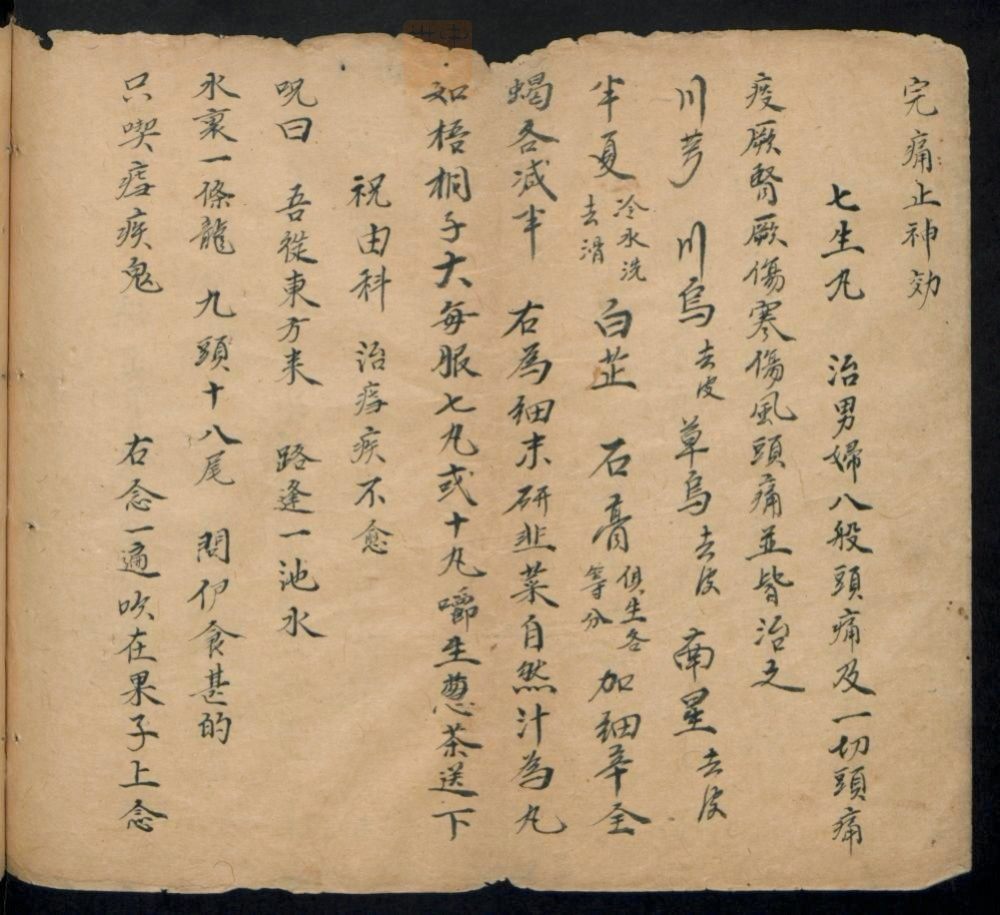 完痛止神効
七生丸 治男婦八般頭痛及一切頭痛
痰厥腎厥傷寒傷風頭痛並皆治之
川芎 川烏去皮 草烏去皮 南星去皮
半夏冷水洗去滑 白芷 石膏俱生各等分 加細辛全
蝎各減半 右為細末研韭菜自然汁為丸
如梧桐子大每服七丸或十丸嚼生蔥茶送下
祝由科 治瘧疾不愈
咒曰 吾從東方来 路逢一池水
水裏一條龍 九頭十八尾 問伊食甚的
只喫瘧疾鬼 右念一遍吹在果子上念